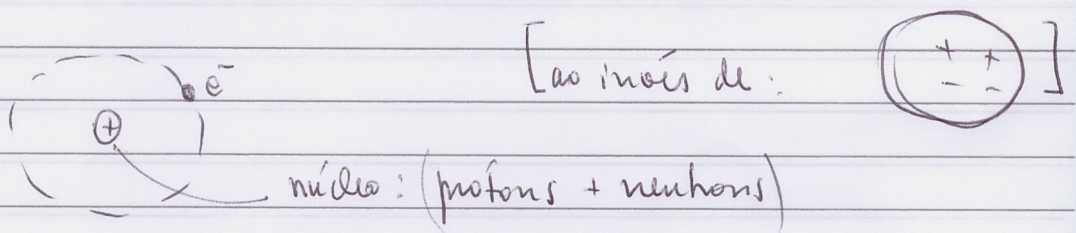 e⁻ [ao invés de: + + - - ]
+
núcleo: (prótons + neutrons)